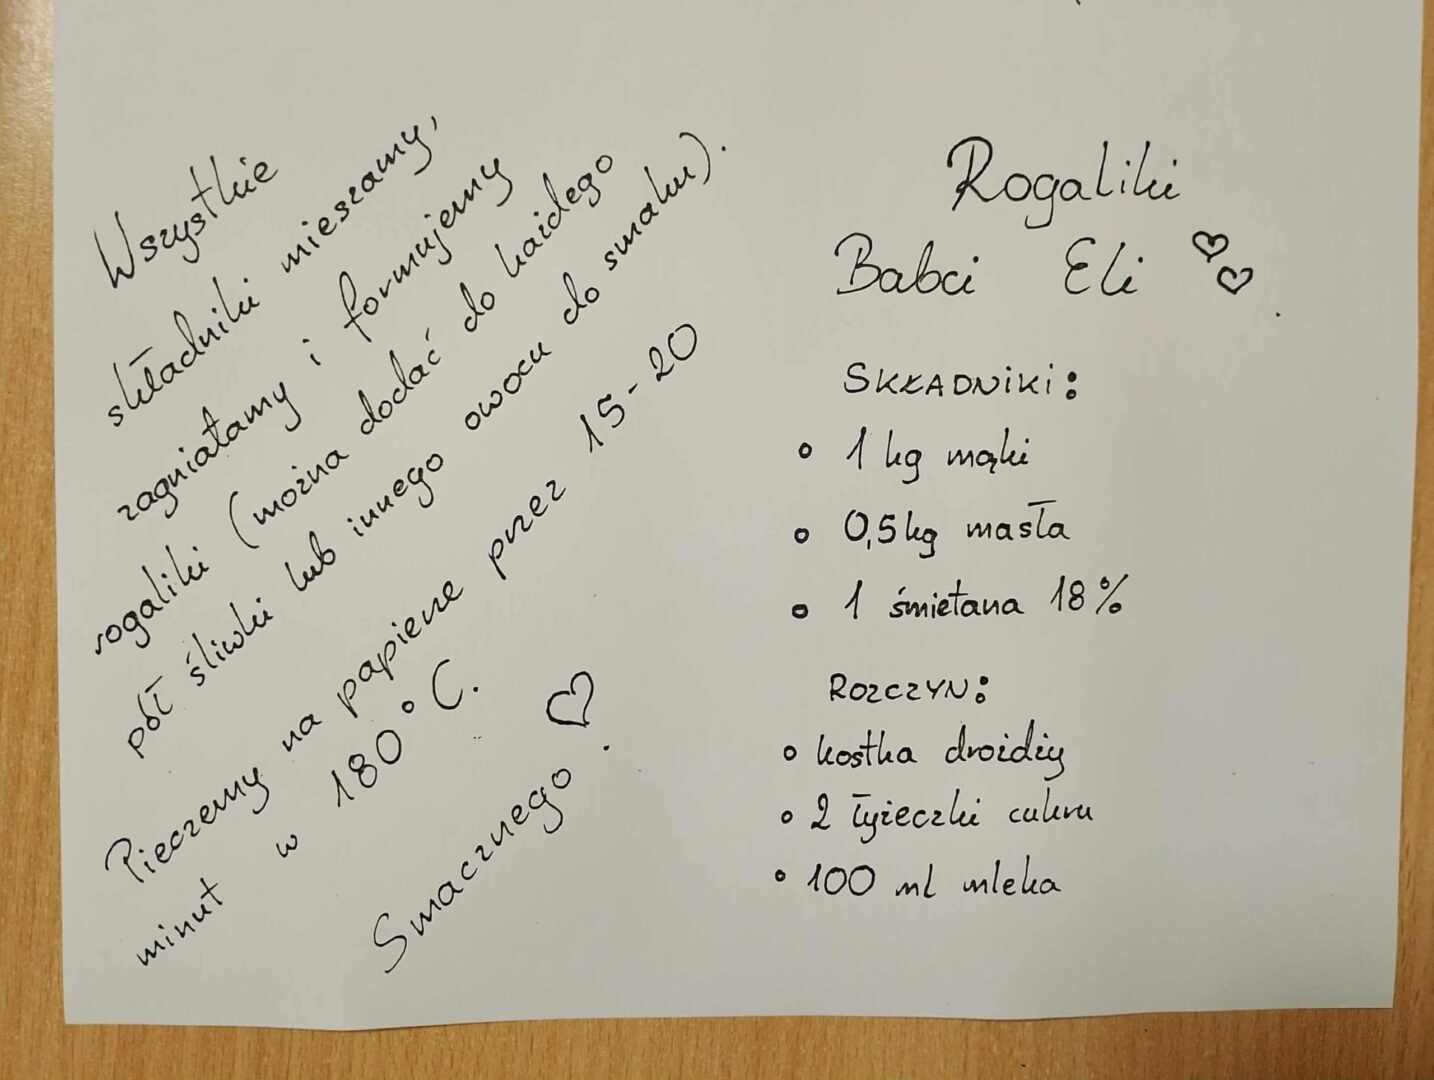 Rogaliki
Babci Eli ♡♡
SKŁADNIKI:
• 1 kg mąki
• 0,5 kg masła
• 1 śmietana 18%
ROZCZYN:
• kostka drożdży
• 2 łyżeczki cukru
• 100 ml mleka
Wszystkie
składniki mieszamy,
zagniatamy i formujemy
rogaliki (można dodać do każdego
pół śliwki lub innego owocu do smaku).
Pieczemy na papierze przez 15-20
minut w 180°C.
Smacznego! ♡